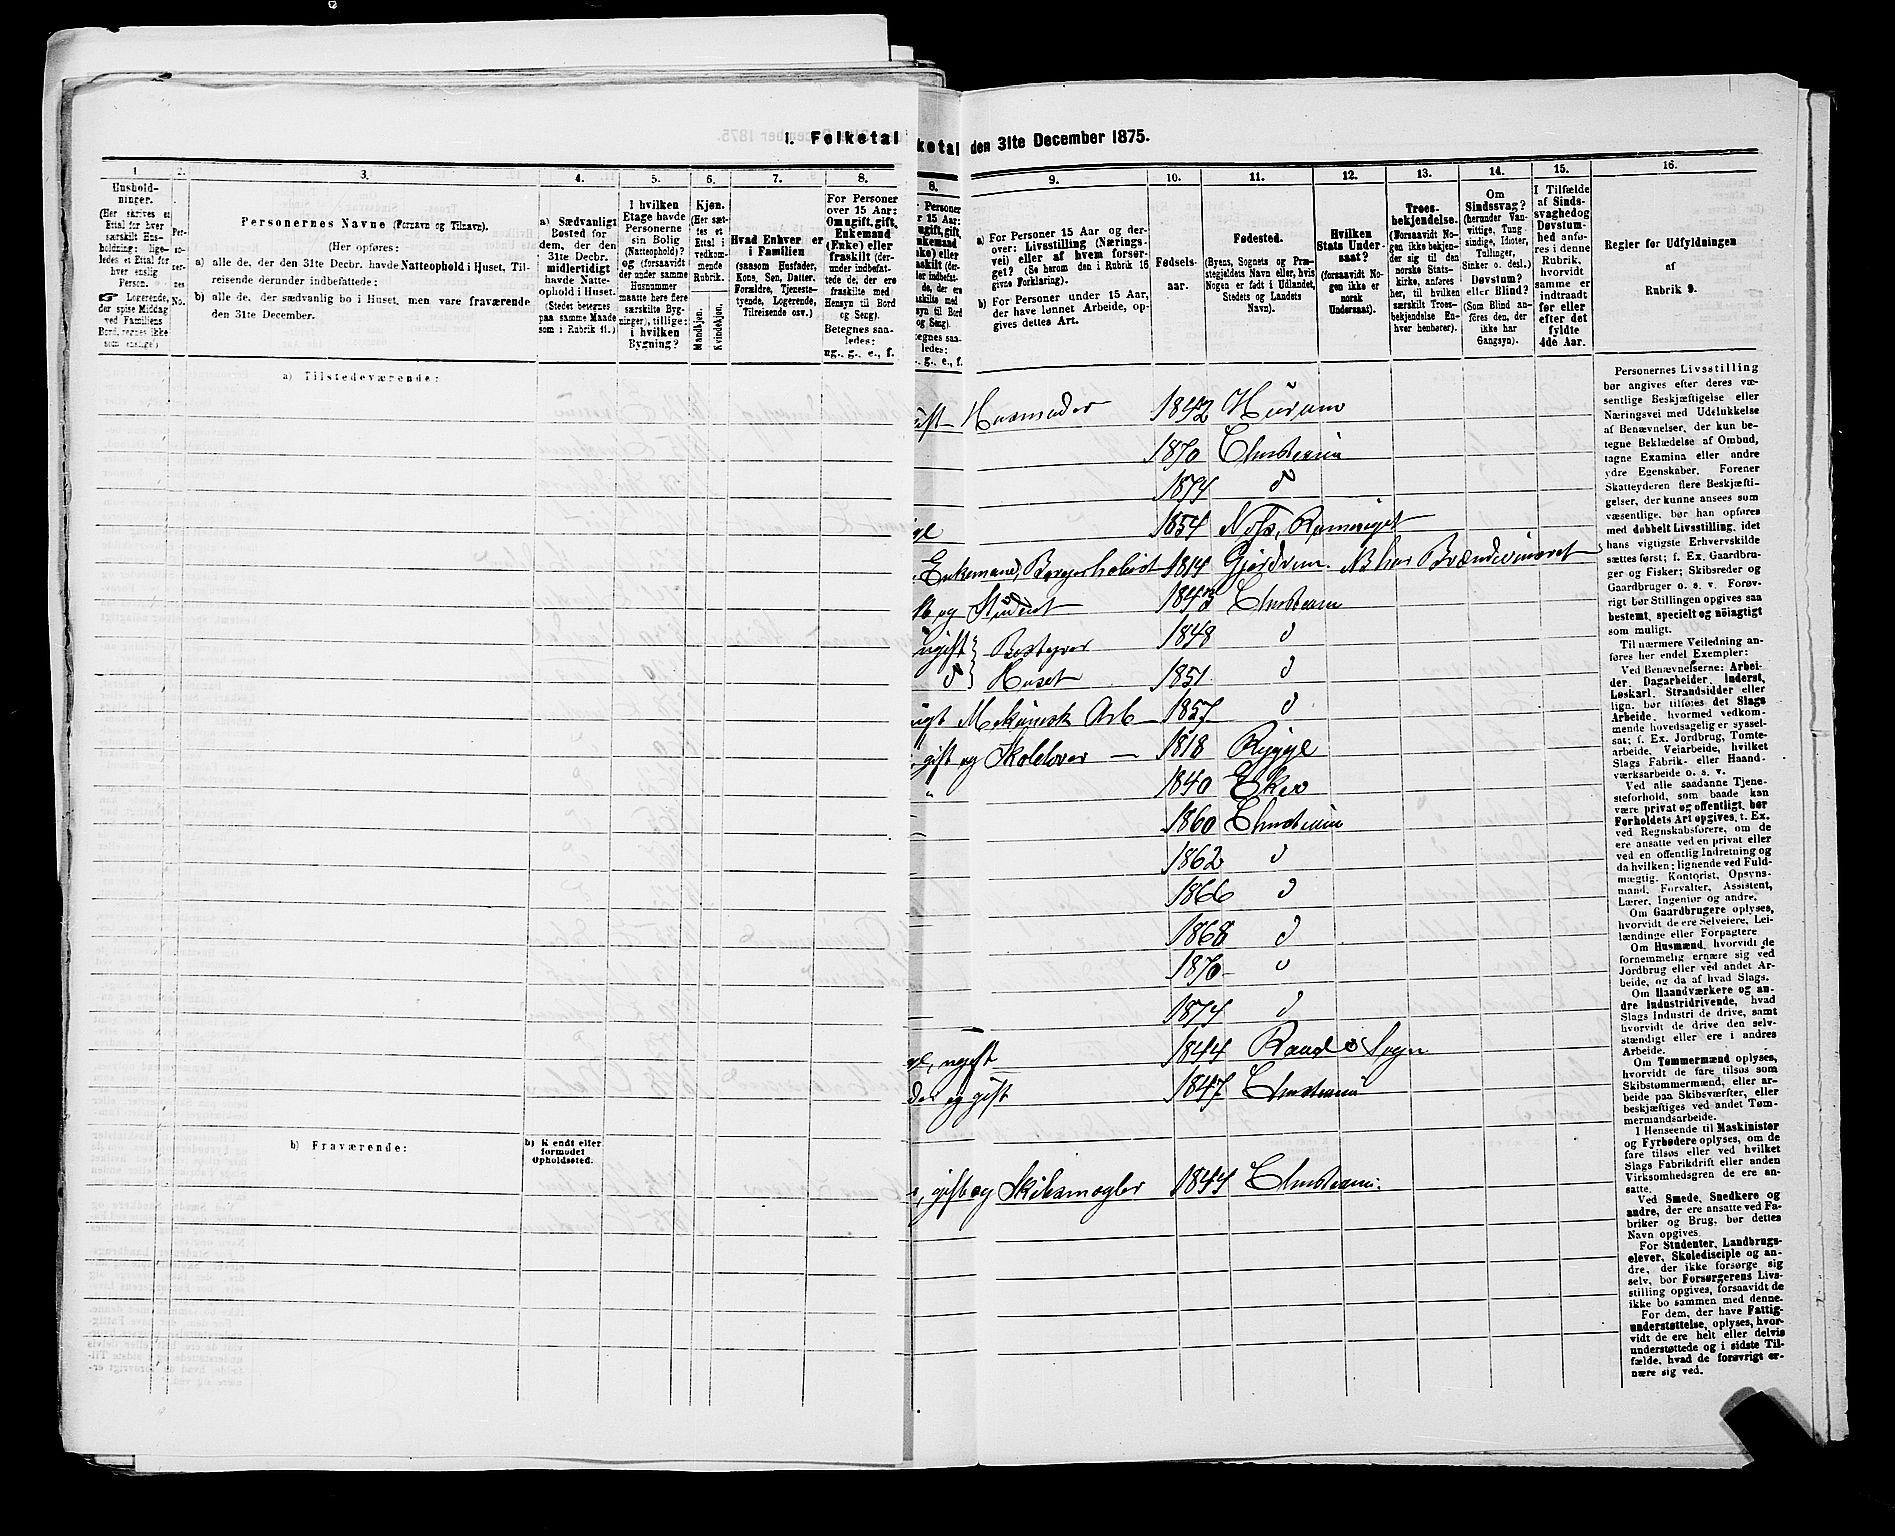 1. Folketal
ketal den 31te December 1875.
1.
Hushold-
ninger.
(Her skrives et
Ettal for hver
særskilt Hus-
holdning; lige-
ledes et Ettal for
hver enslig
Person.
☞ Logerende,
der spise Middag
ved Familiens
Bord, regnes ikke
som enslige)
2.
Per-
so-
ner-
nes
No.
3.
Personernes Navne (Fornavn og Tilnavn).
(Her opføres:
a) alle de, der den 31te Decbr. havde Natteophold i Huset, Til-
reisende derunder indbefattede;
b) alle de, der sædvanlig bo i Huset, men vare fraværende
den 31te December.
4.
a) Sædvanligt
Bosted for
dem, der den
31te Decbr.
midlertidigt
havde Natte-
ophold i Huset.
(Stedet betegnes
paa samme Maade
som i Rubrik 11.)
5.
I hvilken
Etage havde
Personerne
sin Bolig
(Natteophold)?
og (forsaavidt
der under samme
Husnummer
maatte høre flere
særskilte Byg-
ninger), tillige:
i hvilken
Bygning?
6.
Kjøn.
(Her sæt-
tes et
Ettal i
vedkom-
mende
Rubrik.
Mandkjøn.
Kvindekjøn.
7.
Hvad Enhver er
i Familien
(saasom Husfader,
Kone, Søn, Datter,
Forældre, Tjeneste-
tyende, Logerende,
Tilreisende osv.)
8.
For Personer
over 15 Aar:
Om ugift, gift,
Enkemand
(Enke) eller
fraskilt (der-
under indbefat-
tede de, der ere
fraskilte med
Hensyn til Bord
og Seng).
Betegnes saa-
ledes:
ug., g., e., f.
8.
9.
a) For Personer 15 Aar og der-
over: Livsstilling (Nærings-
vei) eller af hvem forsør-
get? (Se herom den i Rubrik 16
givne Forklaring).
b) For Personer under 15 Aar,
der have lønnet Arbeide, op-
gives dettes Art.
10.
Fødsels-
aar.
11.
Fødested.
(Byens, Sognets og Præ-
stegjeldets Navn eller, hvis
Nogen er født i Udlandet,
Stedets og Landets
Navn).
12.
Hvilken
Stats Under-
saat?
(forsaavidt No-
gen ikke er
norsk
Undersaat).
13.
Troes-
bekjendelse.
(Forsaavidt No-
gen ikke bekjen-
der sig til den
norske Stats-
kirke, anføres
her, til hvilken
særskilt Troes-
bekjendelse En-
hver henhører).
14.
Om
Sindssvag?
(herunder Van-
vittige, Tung-
sindige, Idioter,
Tullinger,
Sinker o. desl.)
Døvstum?
eller Blind?
(Som Blind an-
føres den, der
ikke har
Gangsyn).
15.
I Tilfælde
af Sinds-
svaghed og
Døvstum-
hed anfø-
res i denne
Rubrik,
hvorvidt
samme er
indtraadt
før eller
efter det
fyldte
4de Aar.
16.
Regler før Udfyldningen
af
Rubrik 9.
a) Tilstedeværende:
Husmoder 1842 Hurum
1870 Christiania
1874 d
1854 Næs, Romeriget
Enkemand, Borgerholdist 1814 Gjerdrum. NB har Brændeviinsret
og Student 1843 Christiania
ugift } Bestyrer 1848 d
d } Huset 1851 d
ugt Mekanisk Arb 1857 d
gift og Skolelærer 1818 Rygge
1840 Eker
1860 Christiania
1862 d
1866 d
1868 d
1870 d
1874 d
ugift 1844 Sogn
og gift 1847 Christiania
b) Fraværende:
b) Kjendt eller
formodet
Opholdssted.
gift og Skibsmægler 1844 Christiania
Personernes Livsstilling
bør angives efter deres væ-
sentlige Beskjæftigelse eller
Næringsvei med Udelukkelse
af Benævnelser, der kun be-
tegne Beklædelse af Ombud,
tagne Examina eller andre
ydre Egenskaber. Forener
Skatteyderen flere Beskjæfti-
gelser, der kunne ansees som
væsentlige, bør han opføres
med dobbelt Livsstilling, idet
hans vigtigste Erhvervskilde
sættes først; f. Ex. Gaardbru-
ger og Fisker; Skibsreder og
Gaardbruger o. s. v. Forøv-
rigt bør Stillingen opgives saa
bestemt, specielt og nøiagtig
som muligt.
Til nærmere Veiledning an-
føres her endel Exempler:
Ved Benævnelserne: Arbei-
der, Dagarbeider, Inderst,
Løskarl, Strandsidder eller
lign. bør tilføres det Slags
Arbeide, hvormed vedkom-
mende hovedsagelig er syssel-
sat; f. Ex. Jordbrug, Tomte-
arbeide, Veiarbeide, hvilket
Slags Fabrik- eller Haand-
værksarbeide o. s. v.
Ved alle saadanne Tjene-
steforhold, som baade kan
være privat og offentligt, bør
Forholdets Art opgives, t. Ex.
ved Regnskabsførere, om de
ere ansatte ved en privat eller
ved en offentlig Indretning og
da hvilken; lignende ved Fuld-
mægtig, Kontorist, Opsyns-
mand, Forvalter, Assistent,
Lærer, Ingeniør og andre.
Om Gaardbrugere oplyses,
hvorvidt de ere Selveiere, Lei-
lændinge eller Forpagtere.
Om Husmænd, hvorvidt de
fornemmelig ernære sig ved
Jordbrug eller ved andet Ar-
beide, og da af hvad Slags.
Om Haandværkere og an-
dre Industridrivende, hvad
Slags Industri de drive, samt
hvorvidt de drive den selv-
stændigt eller ere i andres
Arbeide.
Om Tømmermænd oplyses,
hvorvidt de fare tilsøs som
Skibstømmermænd, eller ar-
beide paa Skibsværfter, eller
beskjæftiges ved andet Tøm-
mermandsarbeide.
I Henseende til Maskinister
og Fyrbødere oplyses, om de
fare tilsøs eller ved hvilket
Slags Fabrikdrift eller anden
Virksomhedsgren de ere an-
satte.
Ved Smede, Snedkere og
andre, der ere ansatte ved Fa-
briker og Brug, bør dettes
Navn opgives.
For Studenter, Landbrugs-
elever, Skoledisciple og an-
dre, der ikke forsørge sig
selv, bør Forsørgerens Livs-
stilling opgives, forsaavidt de
ikke bo sammen med denne.
For dem, der have Fattig-
understøttelse, oplyses, hvor-
vidt de ere helt eller delvis
understøttede og i sidste Til-
fælde, hvad de forøvrigt er-
nære sig ved.